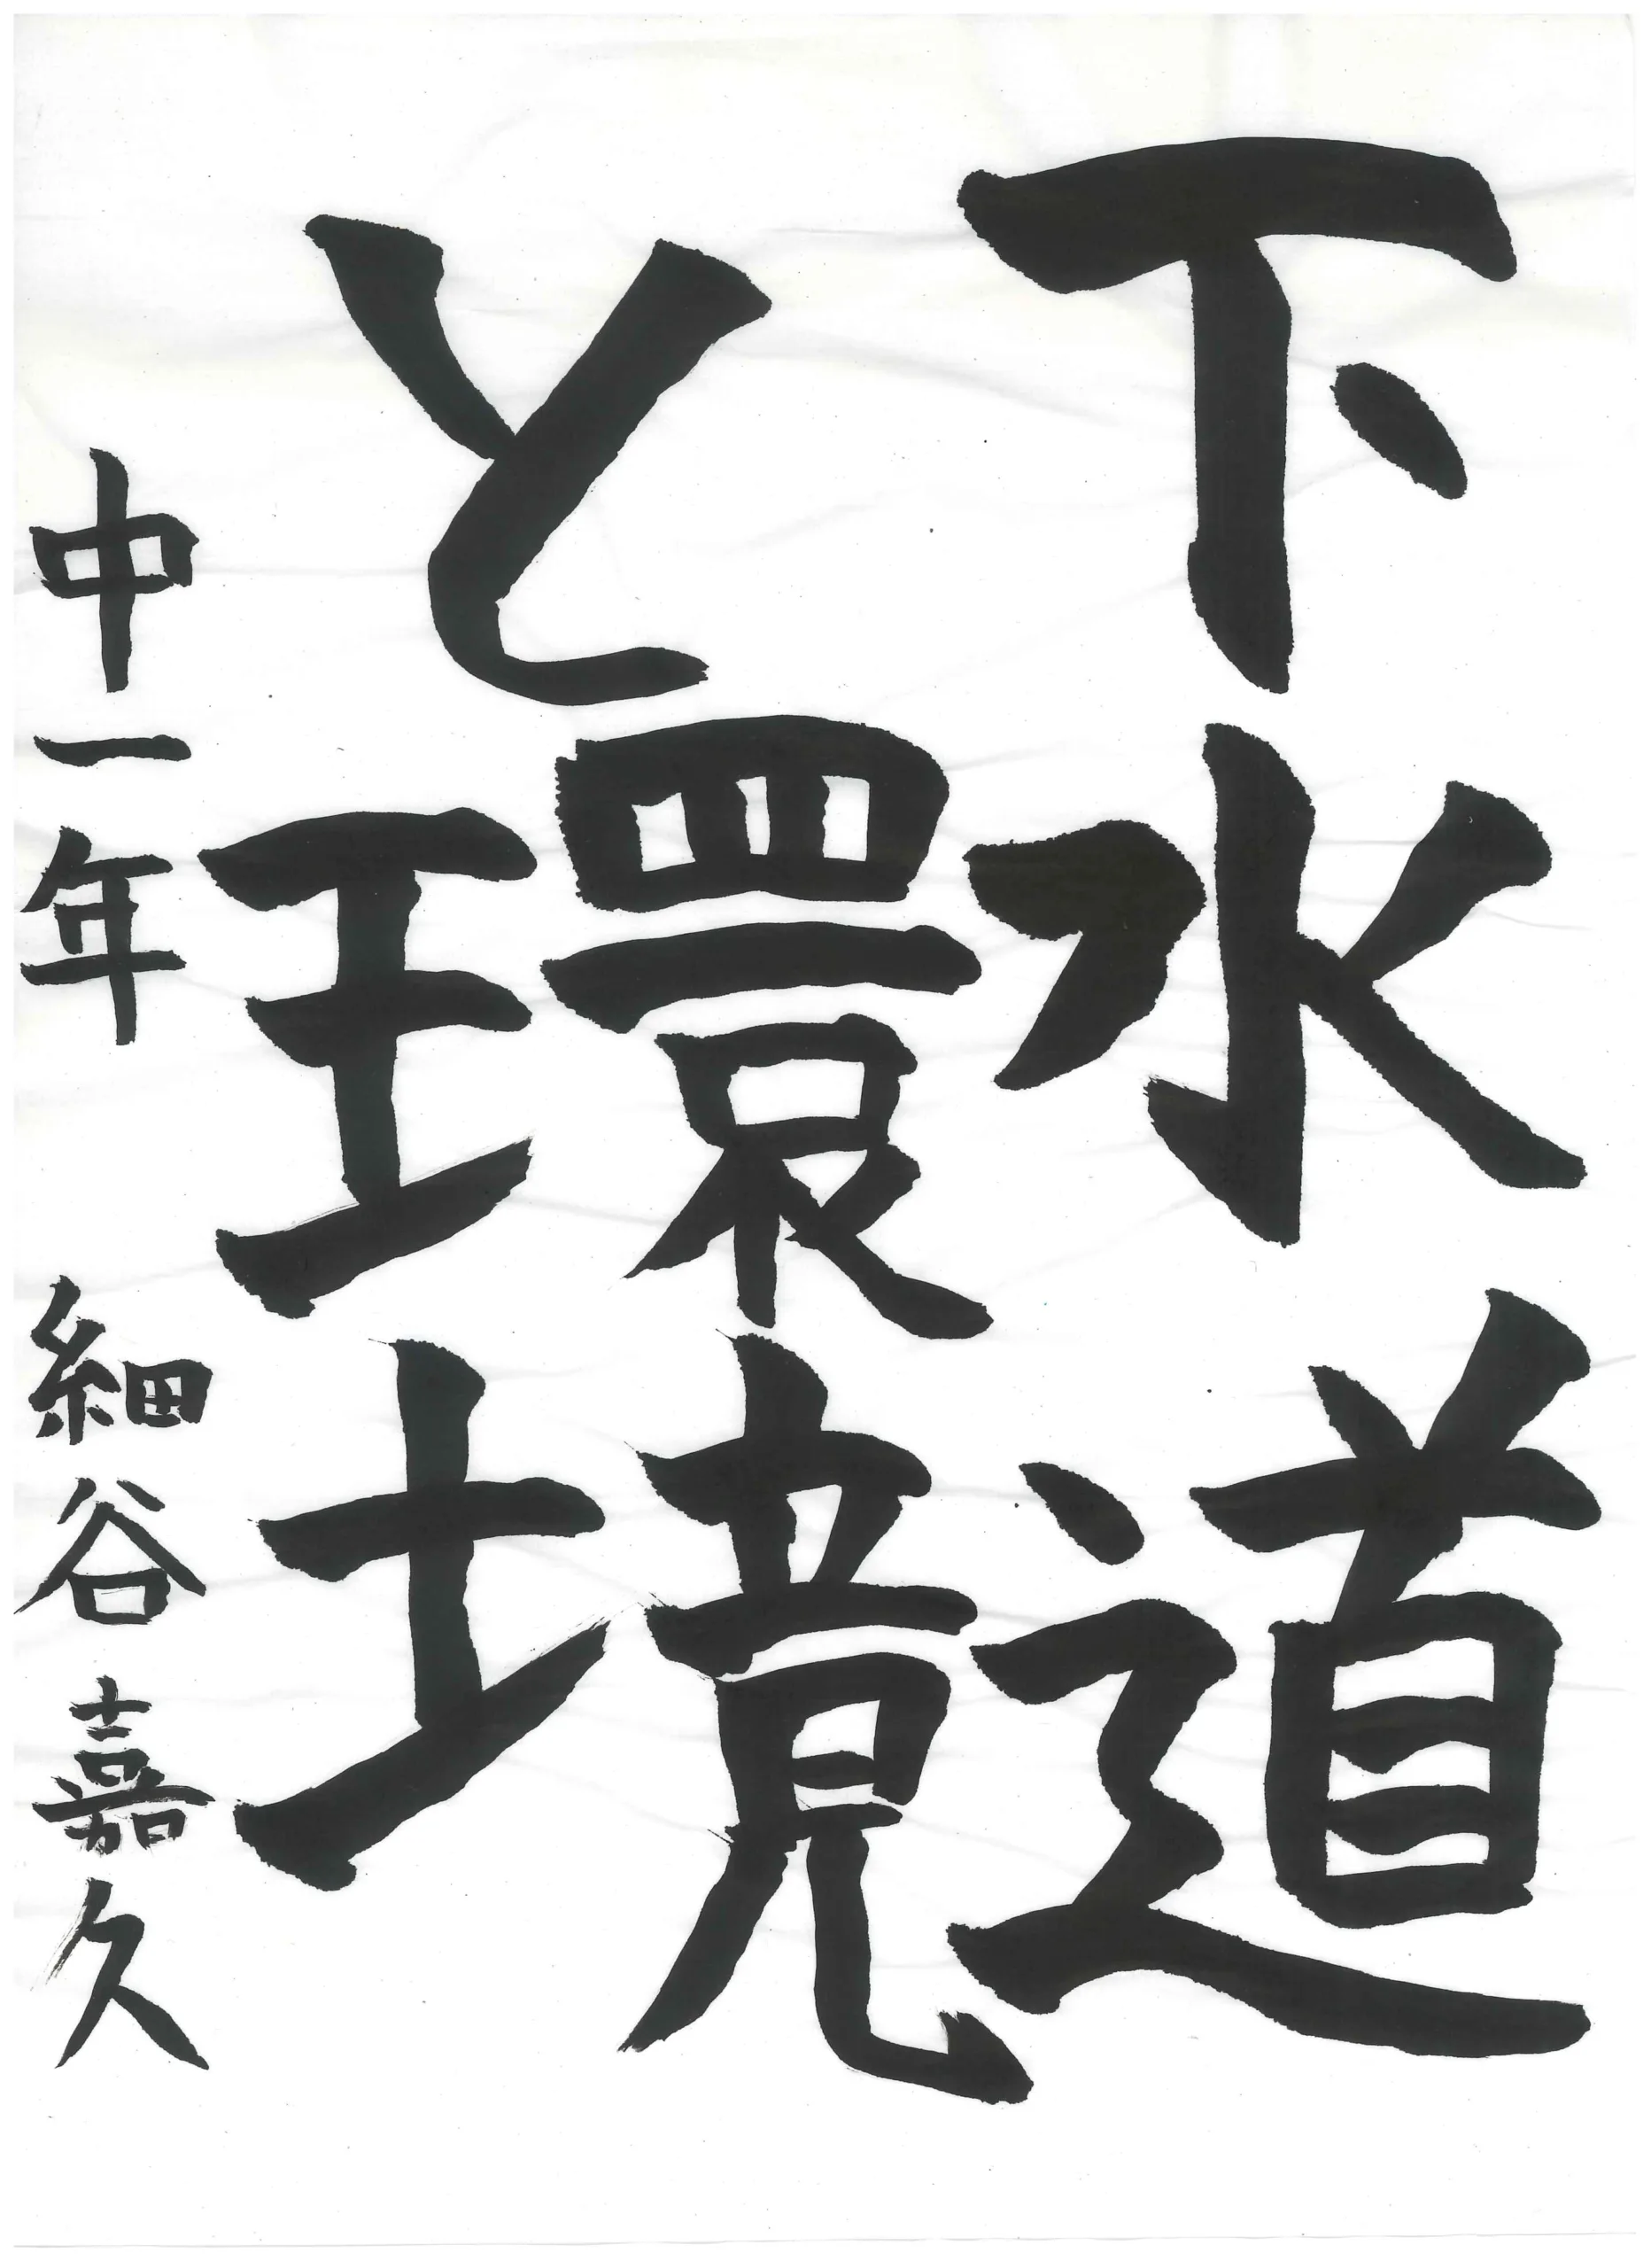 下水道
と環境
中一年 細谷嘉久